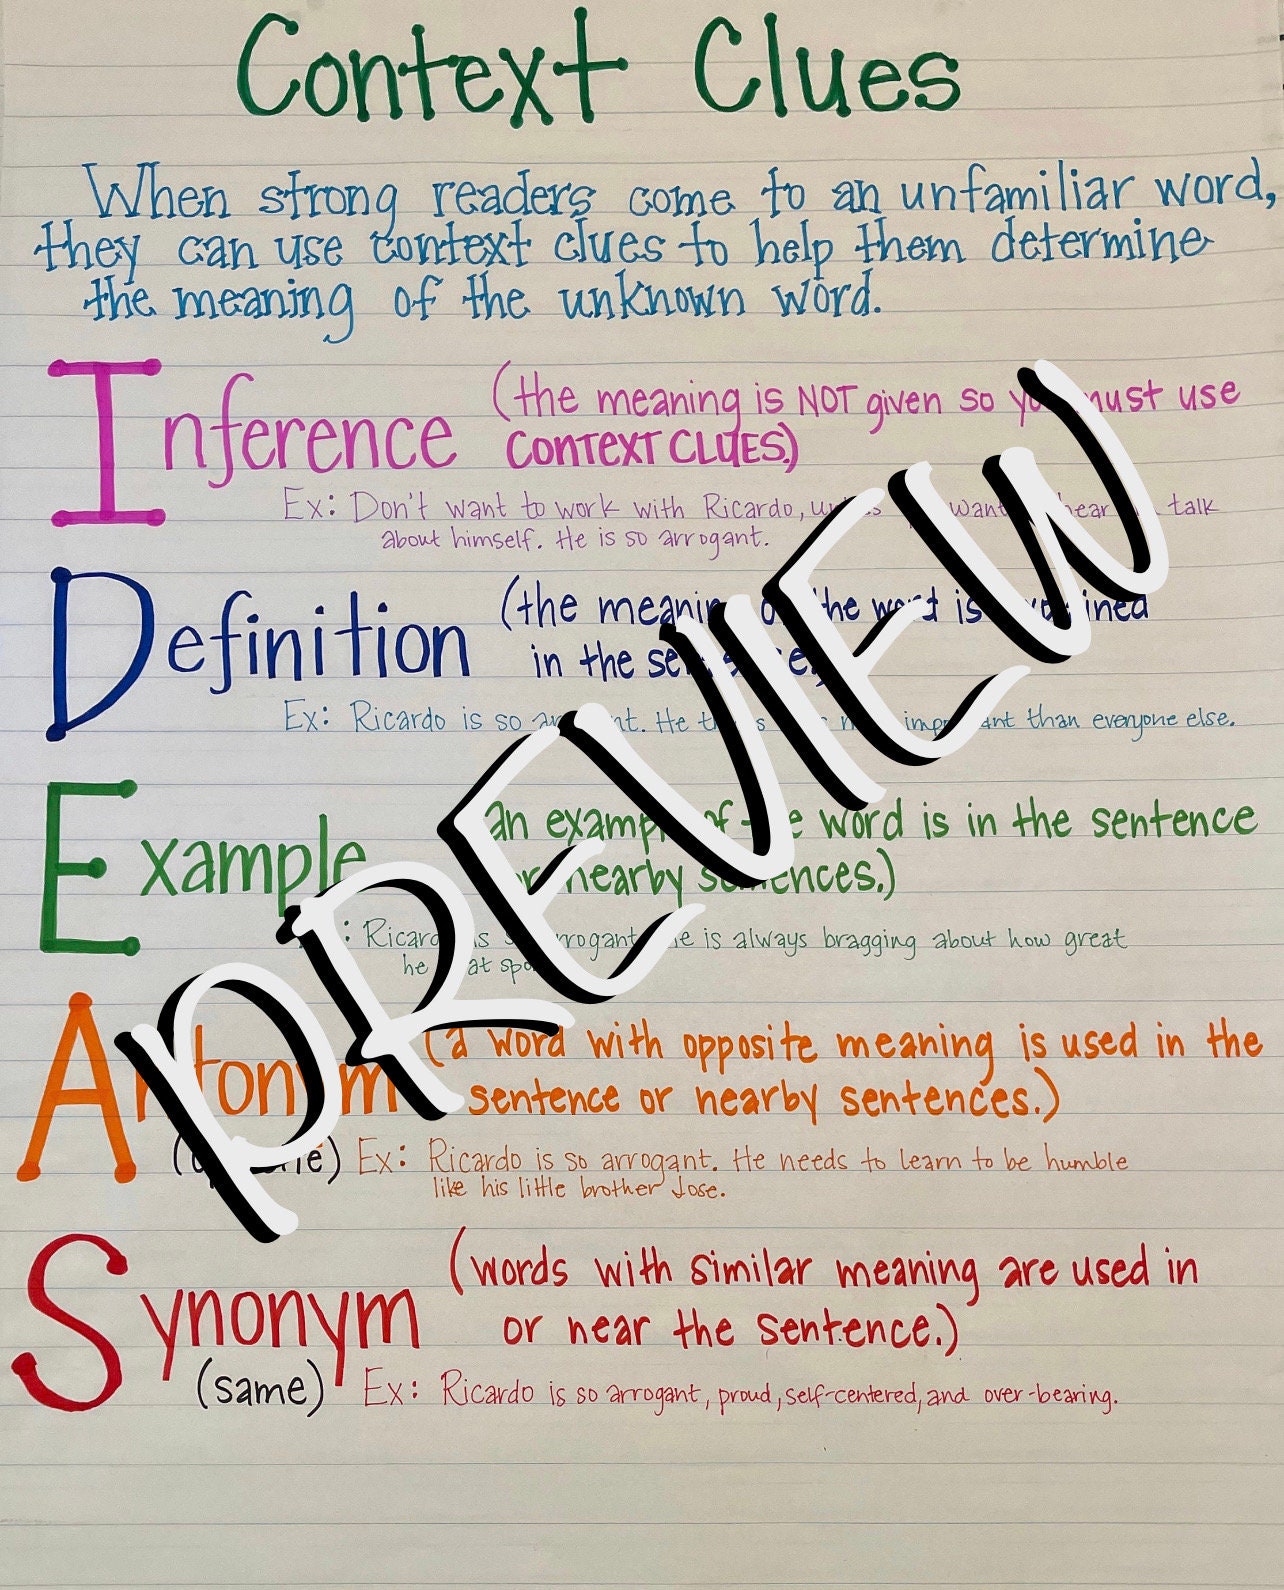 Context Clues
When strong readers come to an unfamiliar word,
they can use context clues to help them determine
the meaning of the unknown word.
Inference (the meaning is NOT given so you must use
CONTEXT CLUES.)
Ex: Don't want to work with Ricardo, want talk
about himself. He is so arrogant.
Definition (the meaning of the word is explained
in the sentence.)
Ex: Ricardo is so arrogant. He important than everyone else.
Example an example of the word is in the sentence
or nearby sentences.)
Ricardo is so arrogant. He is always bragging about how great
he
Antonym (a word with opposite meaning is used in the
sentence or nearby sentences.)
(opposite) Ex: Ricardo is so arrogant. He needs to learn to be humble
like his little brother Jose.
Synonym (words with similar meaning are used in
or near the sentence.)
(same) Ex: Ricardo is so arrogant, proud, self-centered, and over-bearing.
PREVIEW